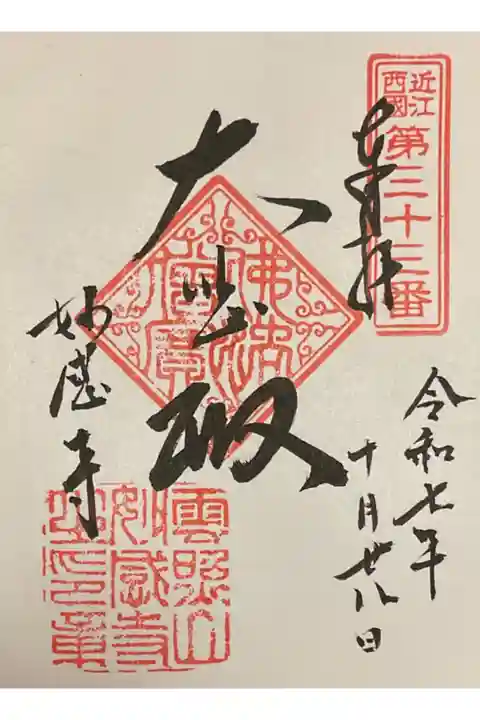 近江
西國
第三十三番
奉拝
大悲殿
佛法
僧寶
妙感寺
雲照山
妙感寺
印章
令和七年
十月廿八日